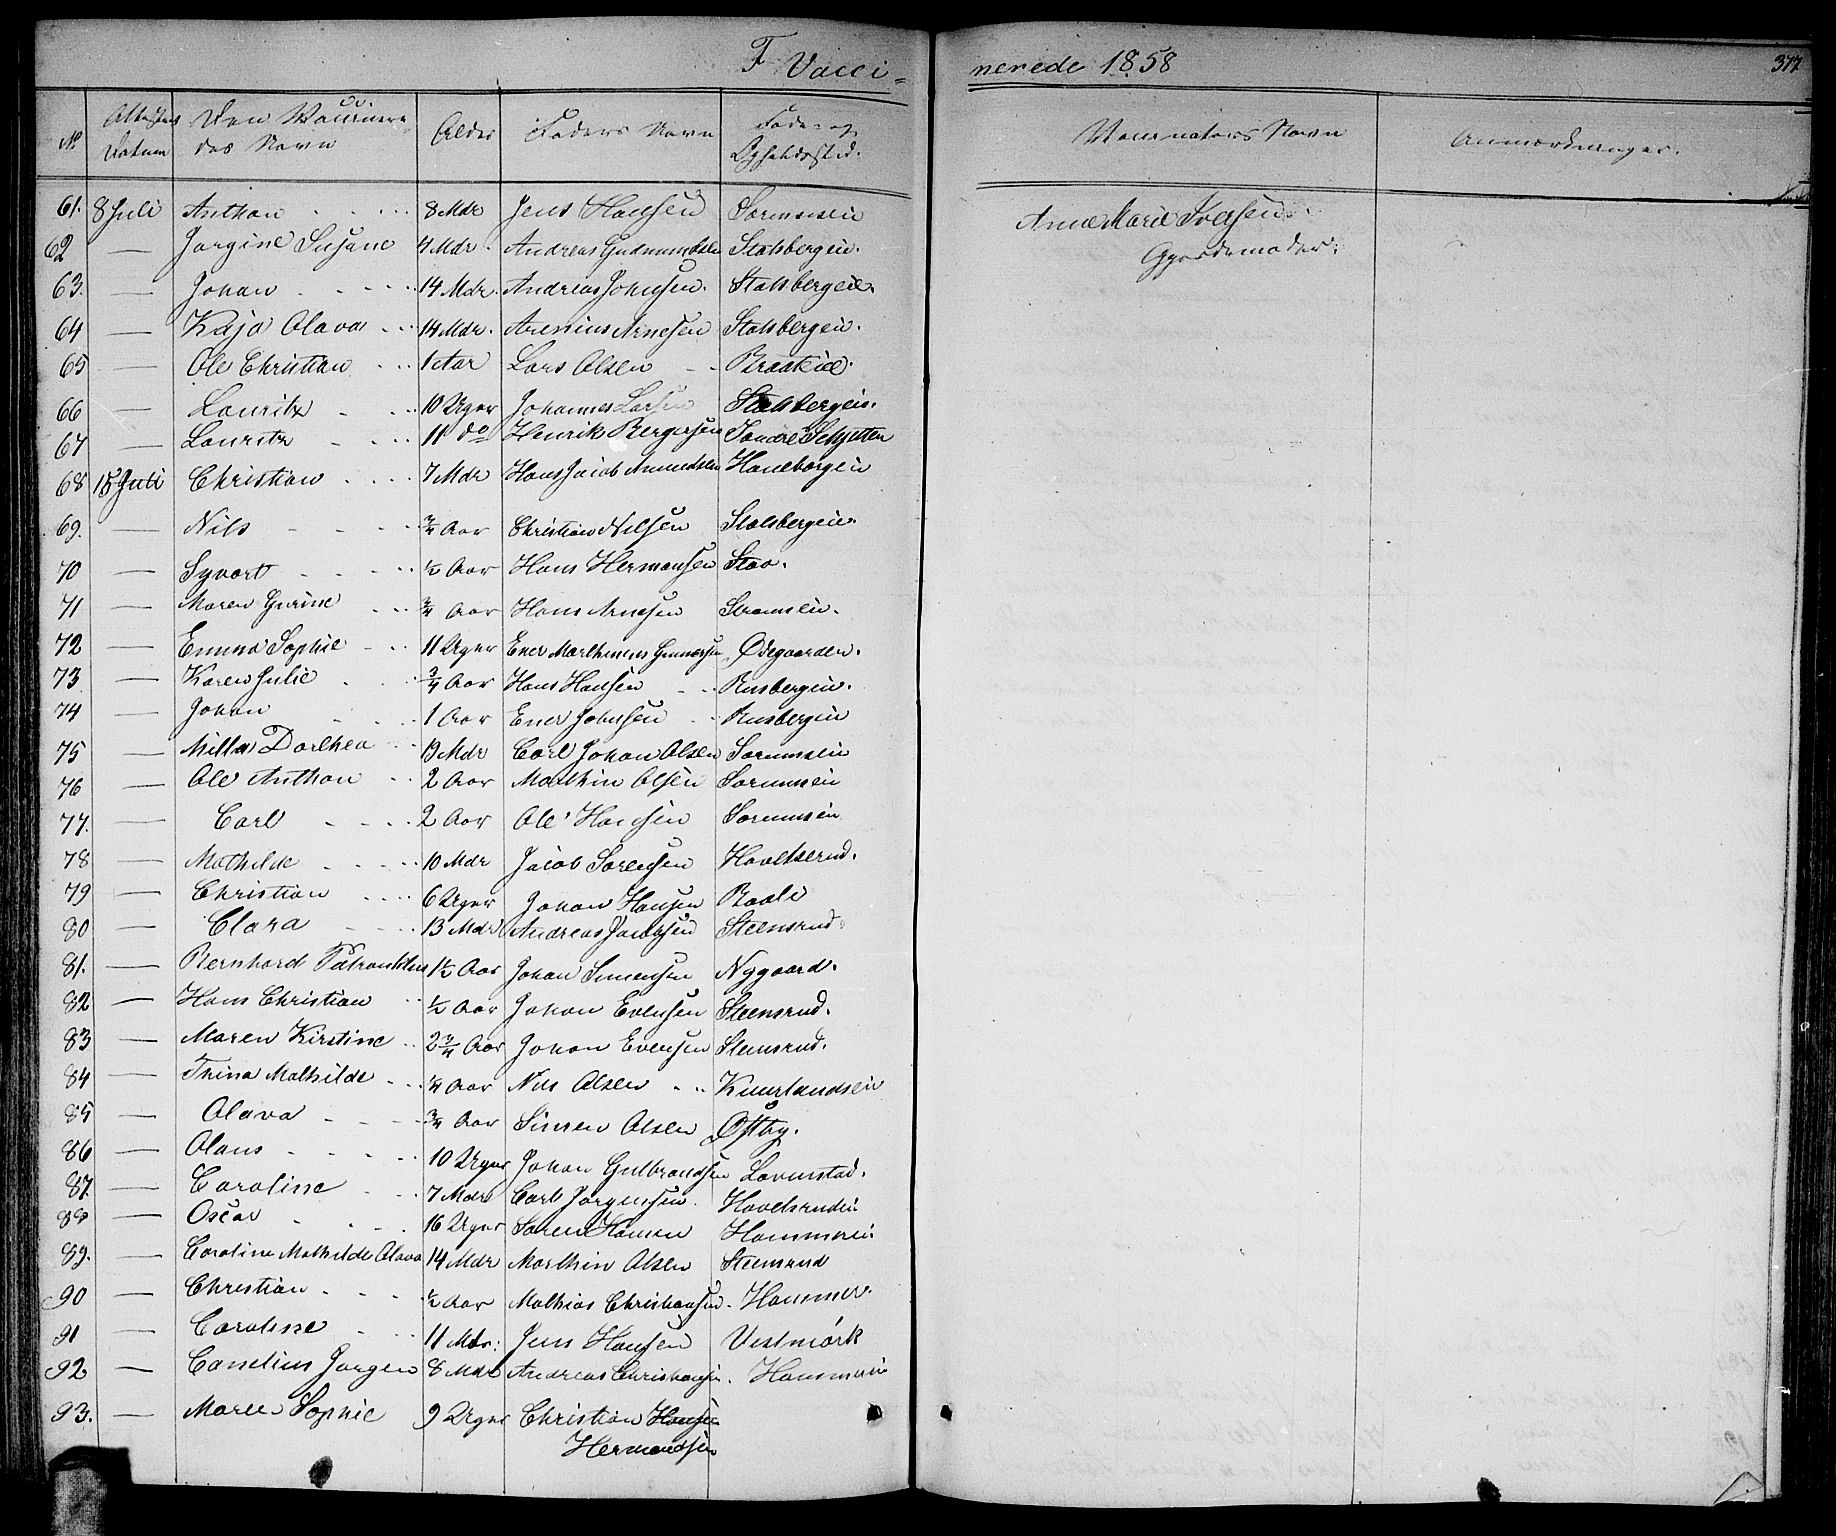 F Vacci-
nerede 1858
377
No
Attestens Datum
Den Vaccinere-
des Navn
Alder
Faders Navn
Føde- og
Opholdssted.
Vaccinators Navn
Anmærkninger.
61. 8 Juli Anthon 8 Mdr Jens Hansen Sørumseie
Anne Marie Iversen
62 — Jørgine Susane 4 Mdr. Andreas Gudmundsen Stalsbergeie.
Gjordemoder.
63. — Johan 14 Mdr. Andreas Johnsen. Stalsbergeie.
64 — Kaja Olava 14 Mdr. Arenius Arnesen Stalsbergeie.
65 — Ole Christian 1 Aar Lars Olsen Braateie.
66 — Lauritz 10 Uger Johannes Larsen Stalsbergeie.
67 — Lauritz 11 do Henrik Bergersen Søndre Schjetten
68 15 Juli Christian 7 Mdr Hans Jacob Amundsen Haneborgeie
69. — Nils 3/4 Aar Christian Nilsen Stalsbergeie.
70 — Syvert 1/2 Aar Hans Hermansen Staa.
71 — Maren Gurine 3/4 Aar Hans Arnesen Strømseie.
72 — Emma Sophie 11 Uger Ener Marthinius Gunnersen Ødegaarden.
73 — Karen Julie 3/4 Aar Hans Hansen Rusbergeie.
74 — Johan 1 Aar Ener Johnsen Rusbergeie
75 — Milla Dorthea 19 Mdr Carl Johan Olsen Sørumseie
76 — Ole Anthon 2 Aar Mathin Olsen Sørumseie
77. — Carl 2 Aar Ole Hansen Sørumseie
78 — Mathilde 10 Mdr Jacob Sørensen Hovelserud.
79 — Christian 6 Uger Johan Hansen Raali
80 — Clara 13 Mdr Andreas Jacobsen Steensrud
81. — Bernhard 1 1/2 Aar Johan Simensen Nygaard.
82 — Hans Christian 1/2 Aar Johan Evensen Steensrud.
83 — Maren Kirstine 2 3/4 Aar Johan Evensen Steensrud.
84 — Trina Mathilde 1/4 Aar Nils Olsen Kuurlandseie
85 — Olava 3/4 Aar Simen Olsen Østby.
86 — Olaus 10 Uger Johan Gulbrandsen Lørenstad.
87. — Caroline 7 Mdr Carl Jørgensen. Hovelsrudei.
88 — Oscar 16 Uger Søren Hansen Hammerei.
89. — Caroline Mathilde Olava 14 Mdr Marthin Olsen Steensrud
90 — Christian 1/2 Aar Mathias Christiansen. Hammer.
91 — Caroline 11 Mdr. Jens Hansen Vestmörk
92 — Cornelius Jørgen 8 Mdr Andreas Christiansen. Hammerei
93. — Maren Sophie 9 Uger Christian Hansen
Hermandsen